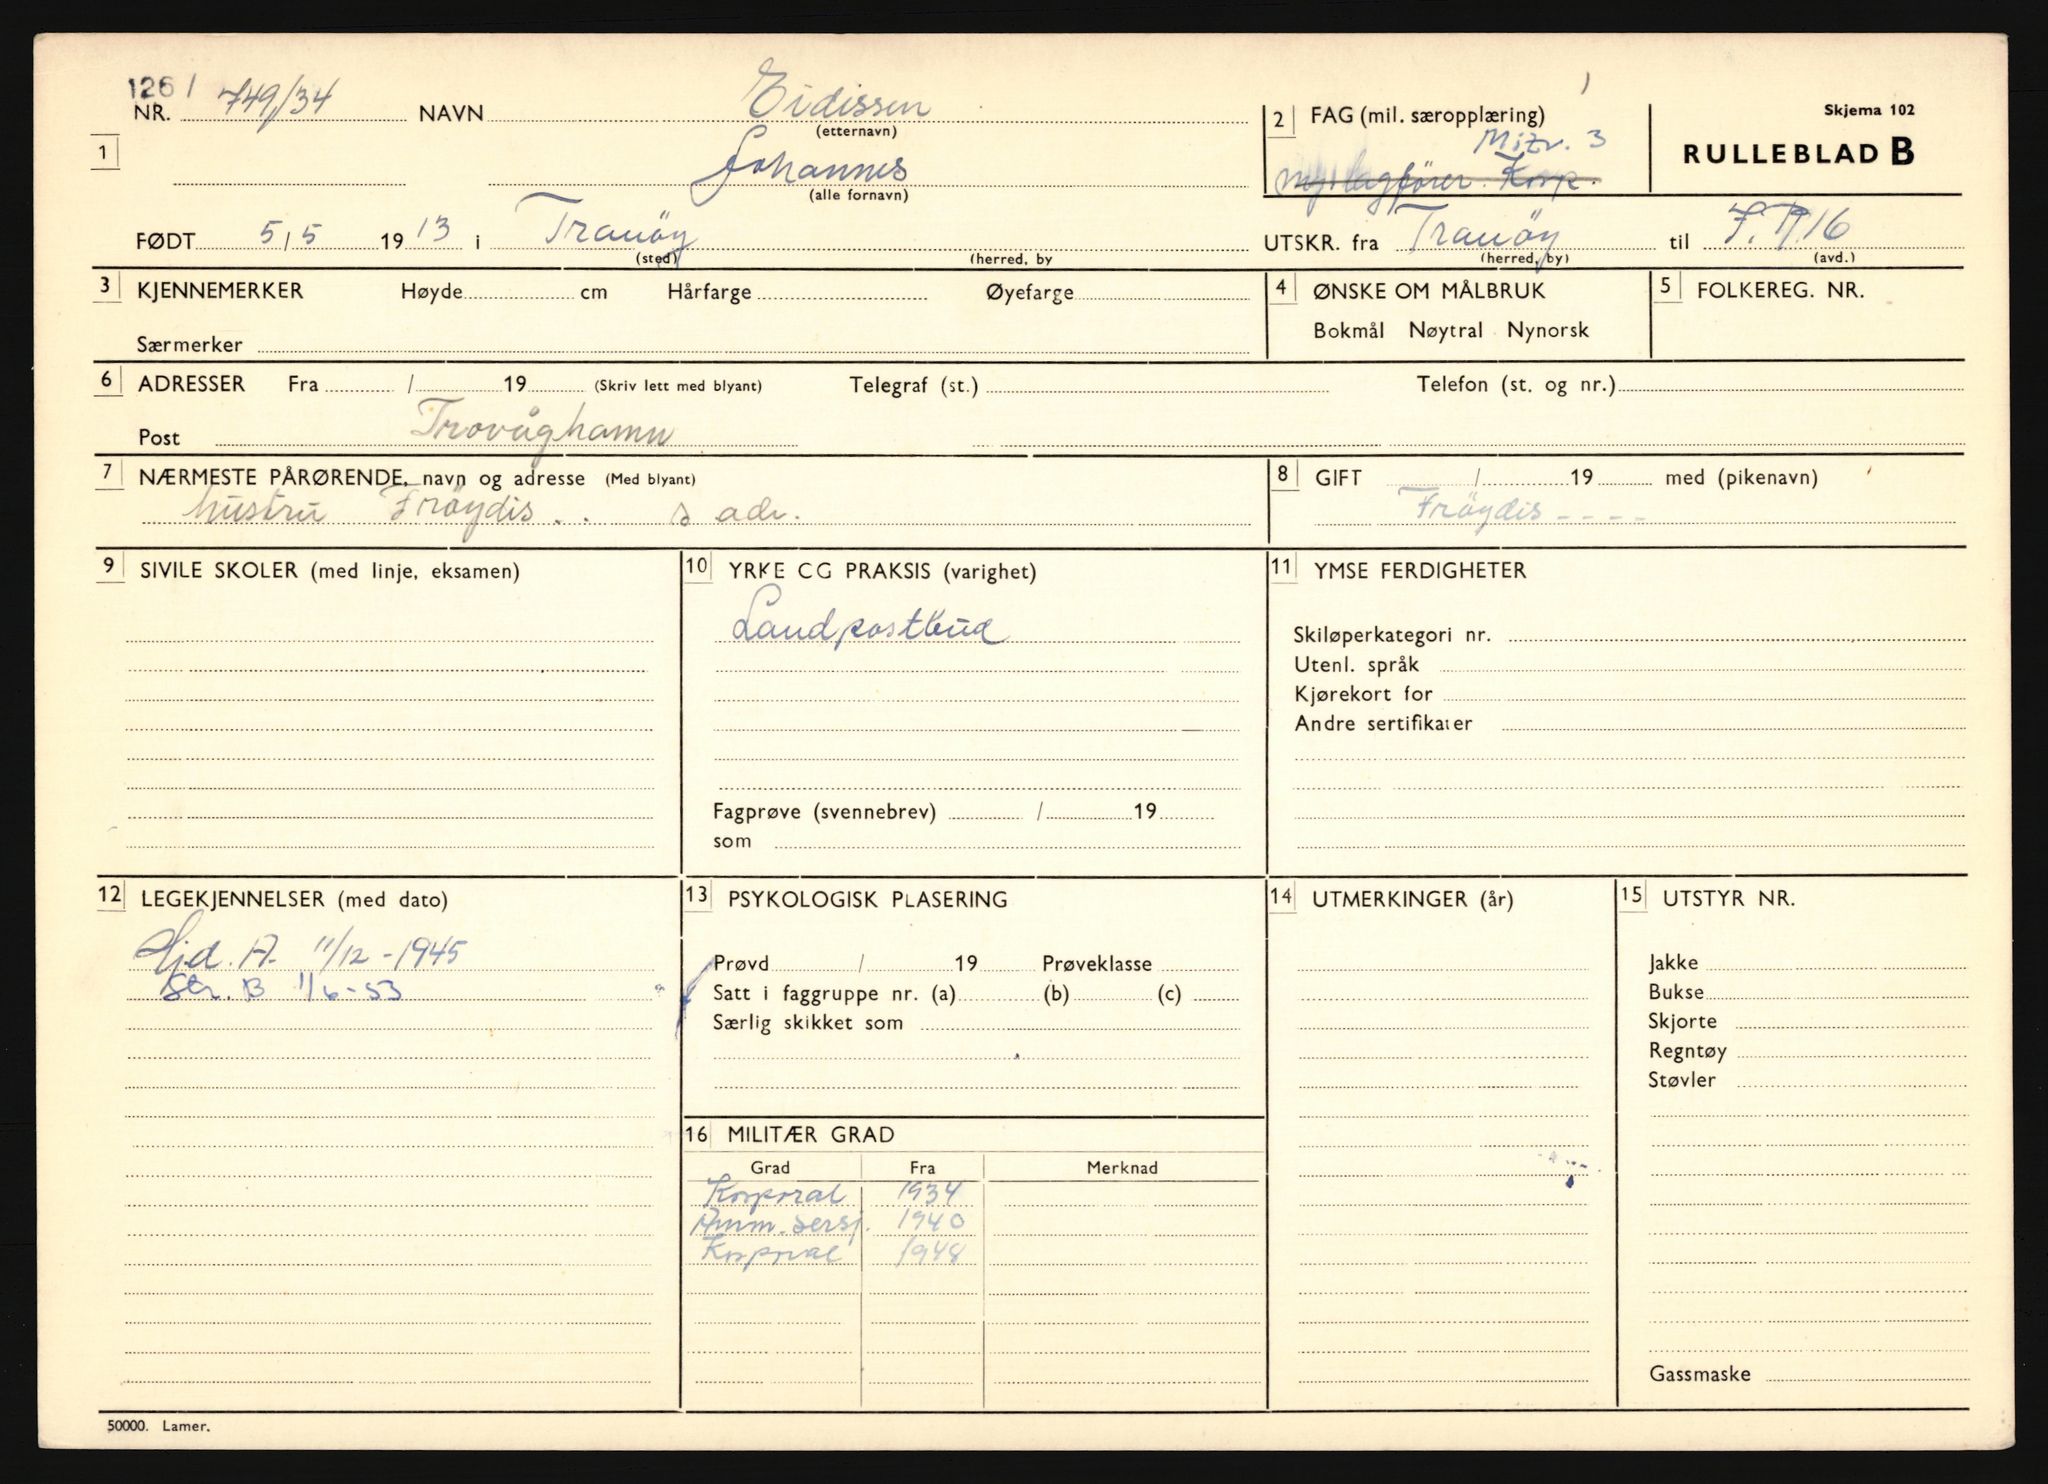 126 /
NR. 749/34 NAVN Eidissen
(etternavn)
1 Johannes
(alle fornavn)
2 FAG (mil. særopplæring)
Mitr. 3
lagfører. Korp.
Skjema 102
RULLEBLAD B
FØDT 5/5 1913 i Tranöy
(sted) (herred, by
UTSKR. fra Tranöy til I.R.16
(herred, by) (avd.)
3 KJENNEMERKER Høyde cm Hårfarge Øyefarge
Særmerker
4 ØNSKE OM MÅLBRUK
Bokmål Nøytral Nynorsk
5 FOLKEREG. NR.
6 ADRESSER Fra / 19 (Skriv lett med blyant) Telegraf (st.) Telefon (st. og nr.)
Post Trovåghamn
7 NÆRMESTE PÅRØRENDE, navn og adresse (Med blyant)
hustru Fröydis . . s adr.
8 GIFT / 19 med (pikenavn)
Fröydis - - - -
9 SIVILE SKOLER (med linje, eksamen)
10 YRKE CG PRAKSIS (varighet)
Landpostbud
Fagprøve (svennebrev) / 19
som
11 YMSE FERDIGHETER
Skiløperkategori nr.
Utenl. språk
Kjørekort for
Andre sertifikater
12 LEGEKJENNELSER (med dato)
Stj.d. A. 11/12 - 1945
Str. B 1/6-53
13 PSYKOLOGISK PLASERING
Prøvd / 19 Prøveklasse
Satt i faggruppe nr. (a) (b) (c)
Særlig skikket som
14 UTMERKINGER (år)
15 UTSTYR NR.
Jakke
Bukse
Skjorte
Regntøy
Støvler
Gassmaske
16 MILITÆR GRAD
Grad Fra Merknad
Korporal 1934
Amm. sersj. 1940
Korporal 1948
50000. Lamer.